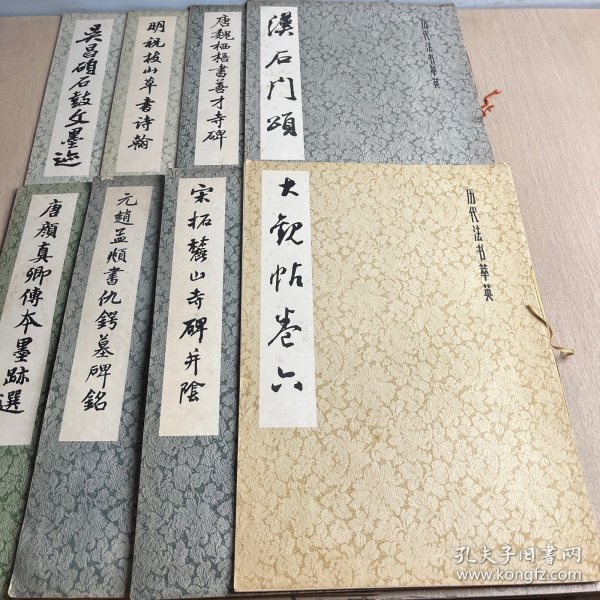 吴昌碩石鼓文墨迹
明祝枝山草书诗翰
唐魏栖梧書善才寺碑
漢石门頌
历代法书萃英
唐顔真卿傳本墨跡選
元趙孟頫書仇鍔墓碑銘
宋拓麓山寺碑并陰
大觀帖卷六
历代法书萃英
孔夫子旧書网
www.kongfz.com